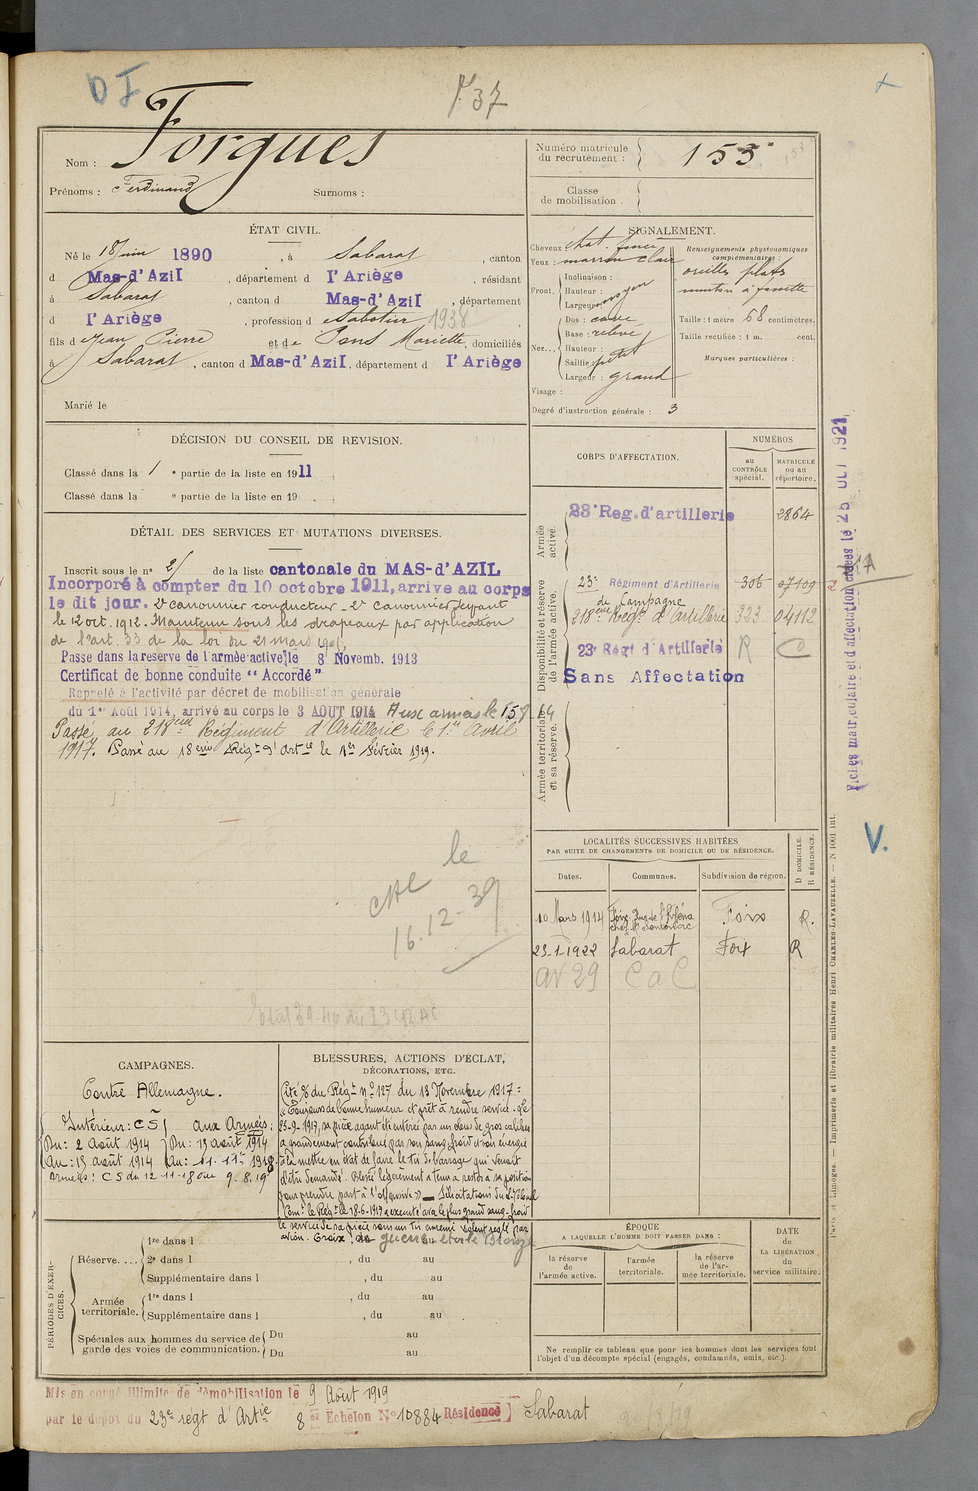 D I
P 37
+
Nom : Forgues
Prénoms : Ferdinand Surnoms :
Numéro matricule du recrutement : 153
Classe de mobilisation .
ÉTAT CIVIL.
Né le 18 juin 1890, à Sabarat, canton
d Mas-d'Azil, département d l'Ariège, résidant
à Sabarat, canton d Mas-d'Azil, département
d l'Ariège, profession d Sabotier 1938
fils de Jean Pierre et de Pons Mariette, domiciliés
à Sabarat, canton d Mas-d'Azil, département d l'Ariège
Marié le
SIGNALEMENT.
Cheveux : chat. foncé
Yeux : marron clair
Front. Inclinaison :
Hauteur : moyen
Largeur
Nez... Dos : cave
Base : relevé
Hauteur :
Saillie petit
Largeur : grand
Visage :
Renseignements physionomiques complémentaires :
oreilles plates
menton à fossette
Taille : 1 mètre 68 centimètres.
Taille rectifiée : 1 m. cent.
Marques particulières :
Degré d'instruction générale : 3
DÉCISION DU CONSEIL DE REVISION.
Classé dans la 1 e partie de la liste en 1911
Classé dans la e partie de la liste en 19 .
DÉTAIL DES SERVICES ET MUTATIONS DIVERSES.
Inscrit sous le n° 2 de la liste cantonale du MAS-d'AZIL
Incorporé à compter du 10 octobre 1911, arrive au corps
le dit jour. 2e canonnier conducteur - 2e canonnier servant
le 12 oct. 1912. Maintenu sous les drapeaux par application
de l'art. 33 de la loi du 21 mars 1905,
Passe dans la reserve de l'armée active le 8 Novemb. 1913
Certificat de bonne conduite "Accordé"
Rappelé à l'activité par décret de mobilisation générale
du 1er Août 1914, arrivé au corps le 3 AOUT 1914 Aux armées le 15
Passé au 218eme Régiment d'Artillerie le 1er Avril
1917. Passé au 18eme Régt d'Artie le 1er Février 1919.
le
16.12-39
CORPS D'AFFECTATION.
NUMÉROS
au CONTRÔLE spécial.
MATRICULE ou au répertoire.
Armée active.
23e Reg. d'artillerie 2864
Disponibilité et réserve de l'armée active.
23e Régiment d'Artillerie 306 07109
de Campagne
218eme Regt d'Artillerie 323 04112
23e Régt d'Artillerie R C
Sans Affectation
Armée territoriale et sa réserve.
LOCALITÉS SUCCESSIVES HABITÉES
PAR SUITE DE CHANGEMENTS DE DOMICILE OU DE RÉSIDENCE.
Dates. Communes. Subdivision de région. D DOMICILE. R RÉSIDENCE.
10 Mars 1914 Foix Foix R.
23-1-1922 Sabarat Foix R
av 29 C a C
V.
Paris et Limoges. — Imprimerie et librairie militaires Henri CHARLES-LAVAUZELLE. — N 1001 int.
CAMPAGNES.
Contre Allemagne.
Intérieur : CS
Du : 2 Août 1914
Au : 13 août 1914
Aux Armées :
Du : 13 août 1914
Au : 11-11 1918
Armées : CS du 12-11-18 au 9.8.19
BLESSURES, ACTIONS D'ÉCLAT,
DÉCORATIONS, ETC.
Cité O/ du Régt n° 127 du 13 Novembre 1917 :
"Toujours de bonne humeur et prêt à rendre service. Le
25-9-1917, sa pièce ayant été enterrée par un obus de gros calibre
a grandement contribué par son sang froid et son énergie
à la mettre en état de faire le tir de barrage qui venait
d'être demandé. Blessé légèrement a tenu à rester à sa position
pour prendre part à l'offensive" — Félicitations du Lt Colonel
Comt le Régt le 18-6-1917 a exécuté avec le plus grand sang-froid
le service de sa pièce sous un tir ennemi violent réglé par
avion. Croix de guerre étoile Bronze
PÉRIODES D'EXERCICES.
Réserve. ... 1re dans l , du au
2e dans l , du au
Supplémentaire dans l , du au
Armée territoriale. 1re dans l , du au
Supplémentaire dans l , du au
Spéciales aux hommes du service de garde des voies de communication. Du au
Du au
ÉPOQUE
A LAQUELLE L'HOMME DOIT PASSER DANS :
la réserve de l'armée active.
l'armée territoriale.
la réserve de l'armée territoriale.
DATE de LA LIBÉRATION du service militaire.
Ne remplir ce tableau que pour les hommes dont les services font
l'objet d'un décompte spécial (engagés, condamnés, omis, etc.).
Mis en congé illimité de démobilisation le 9 Août 1919
par le dépôt du 23e régt d'Artie 8e Echelon N° 10884 Résidence Sabarat